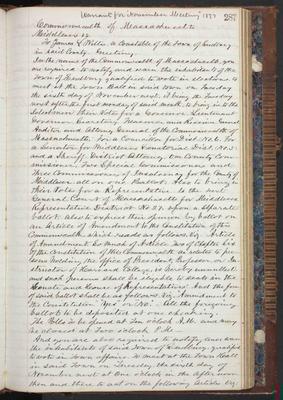 Warrant for November Meeting 1877
287
Commonwealth of Massachusetts
Middlesex ss.
To James L Willis a Constable of the Town of Sudbury
in said County. Greeting.
In the name of the Commonwealth of Massachusetts, you
are required to notify and warn the inhabitants of the
Town of Sudbury qualified to vote in elections to
meet at the Town Hall in said town on Tuesday
the sixth day of November next, it being the Tuesday
next after the first monday of said month, to bring in to the
Selectmen their Votes for a Governor Lieutenant
Governor, Secretary, Treasurer and Receiver General
Auditor and Attorney General of the Commonwealth of
Massachusetts, for a Councillor for Dist. No.
a Senator for Middlesex Senatorial Dist. No.
and a Sheriff, District Attorney, one County Comm
issioner, Two Special Commissioners and
Three Commissioners of Insolvency for the County of
Middlesex all on one Ballot. Also to bring in
their Votes for a Representative to the next
General Court of Massachusetts for Middlesex
Representative District No. upon a separate
ballot. also to express their opinion by ballot on
an Article of Amendment to the Constitution of the
Commonwealth which reads as follows, viz. Article
of Amendment. So much of Article two of Chapter six
of the Constitution of this Commonwealth as relates to per-
sons holding the office of President, Professor or In-
structor of Harvard College, is hereby annulled.
and such persons shall be eligible to seats in the
Senate and House of Representatives. And the form
of said ballot shall be as follows, viz. Amendment to
the Constitution "Yes" or "No". All the foregoing
ballots to be deposited at one balloting.
The Polls to be opened at Ten o'clock A.M. and may
be closed at Two o'clock P.M.
And you are also required to notify and warn
the inhabitants of said Town of Sudbury qualified
to vote in Town affairs to meet at the Town Hall
in said Town on Tuesday the sixth day of
November next at One o'clock in the afternoon
then and there to act on the following articles viz.